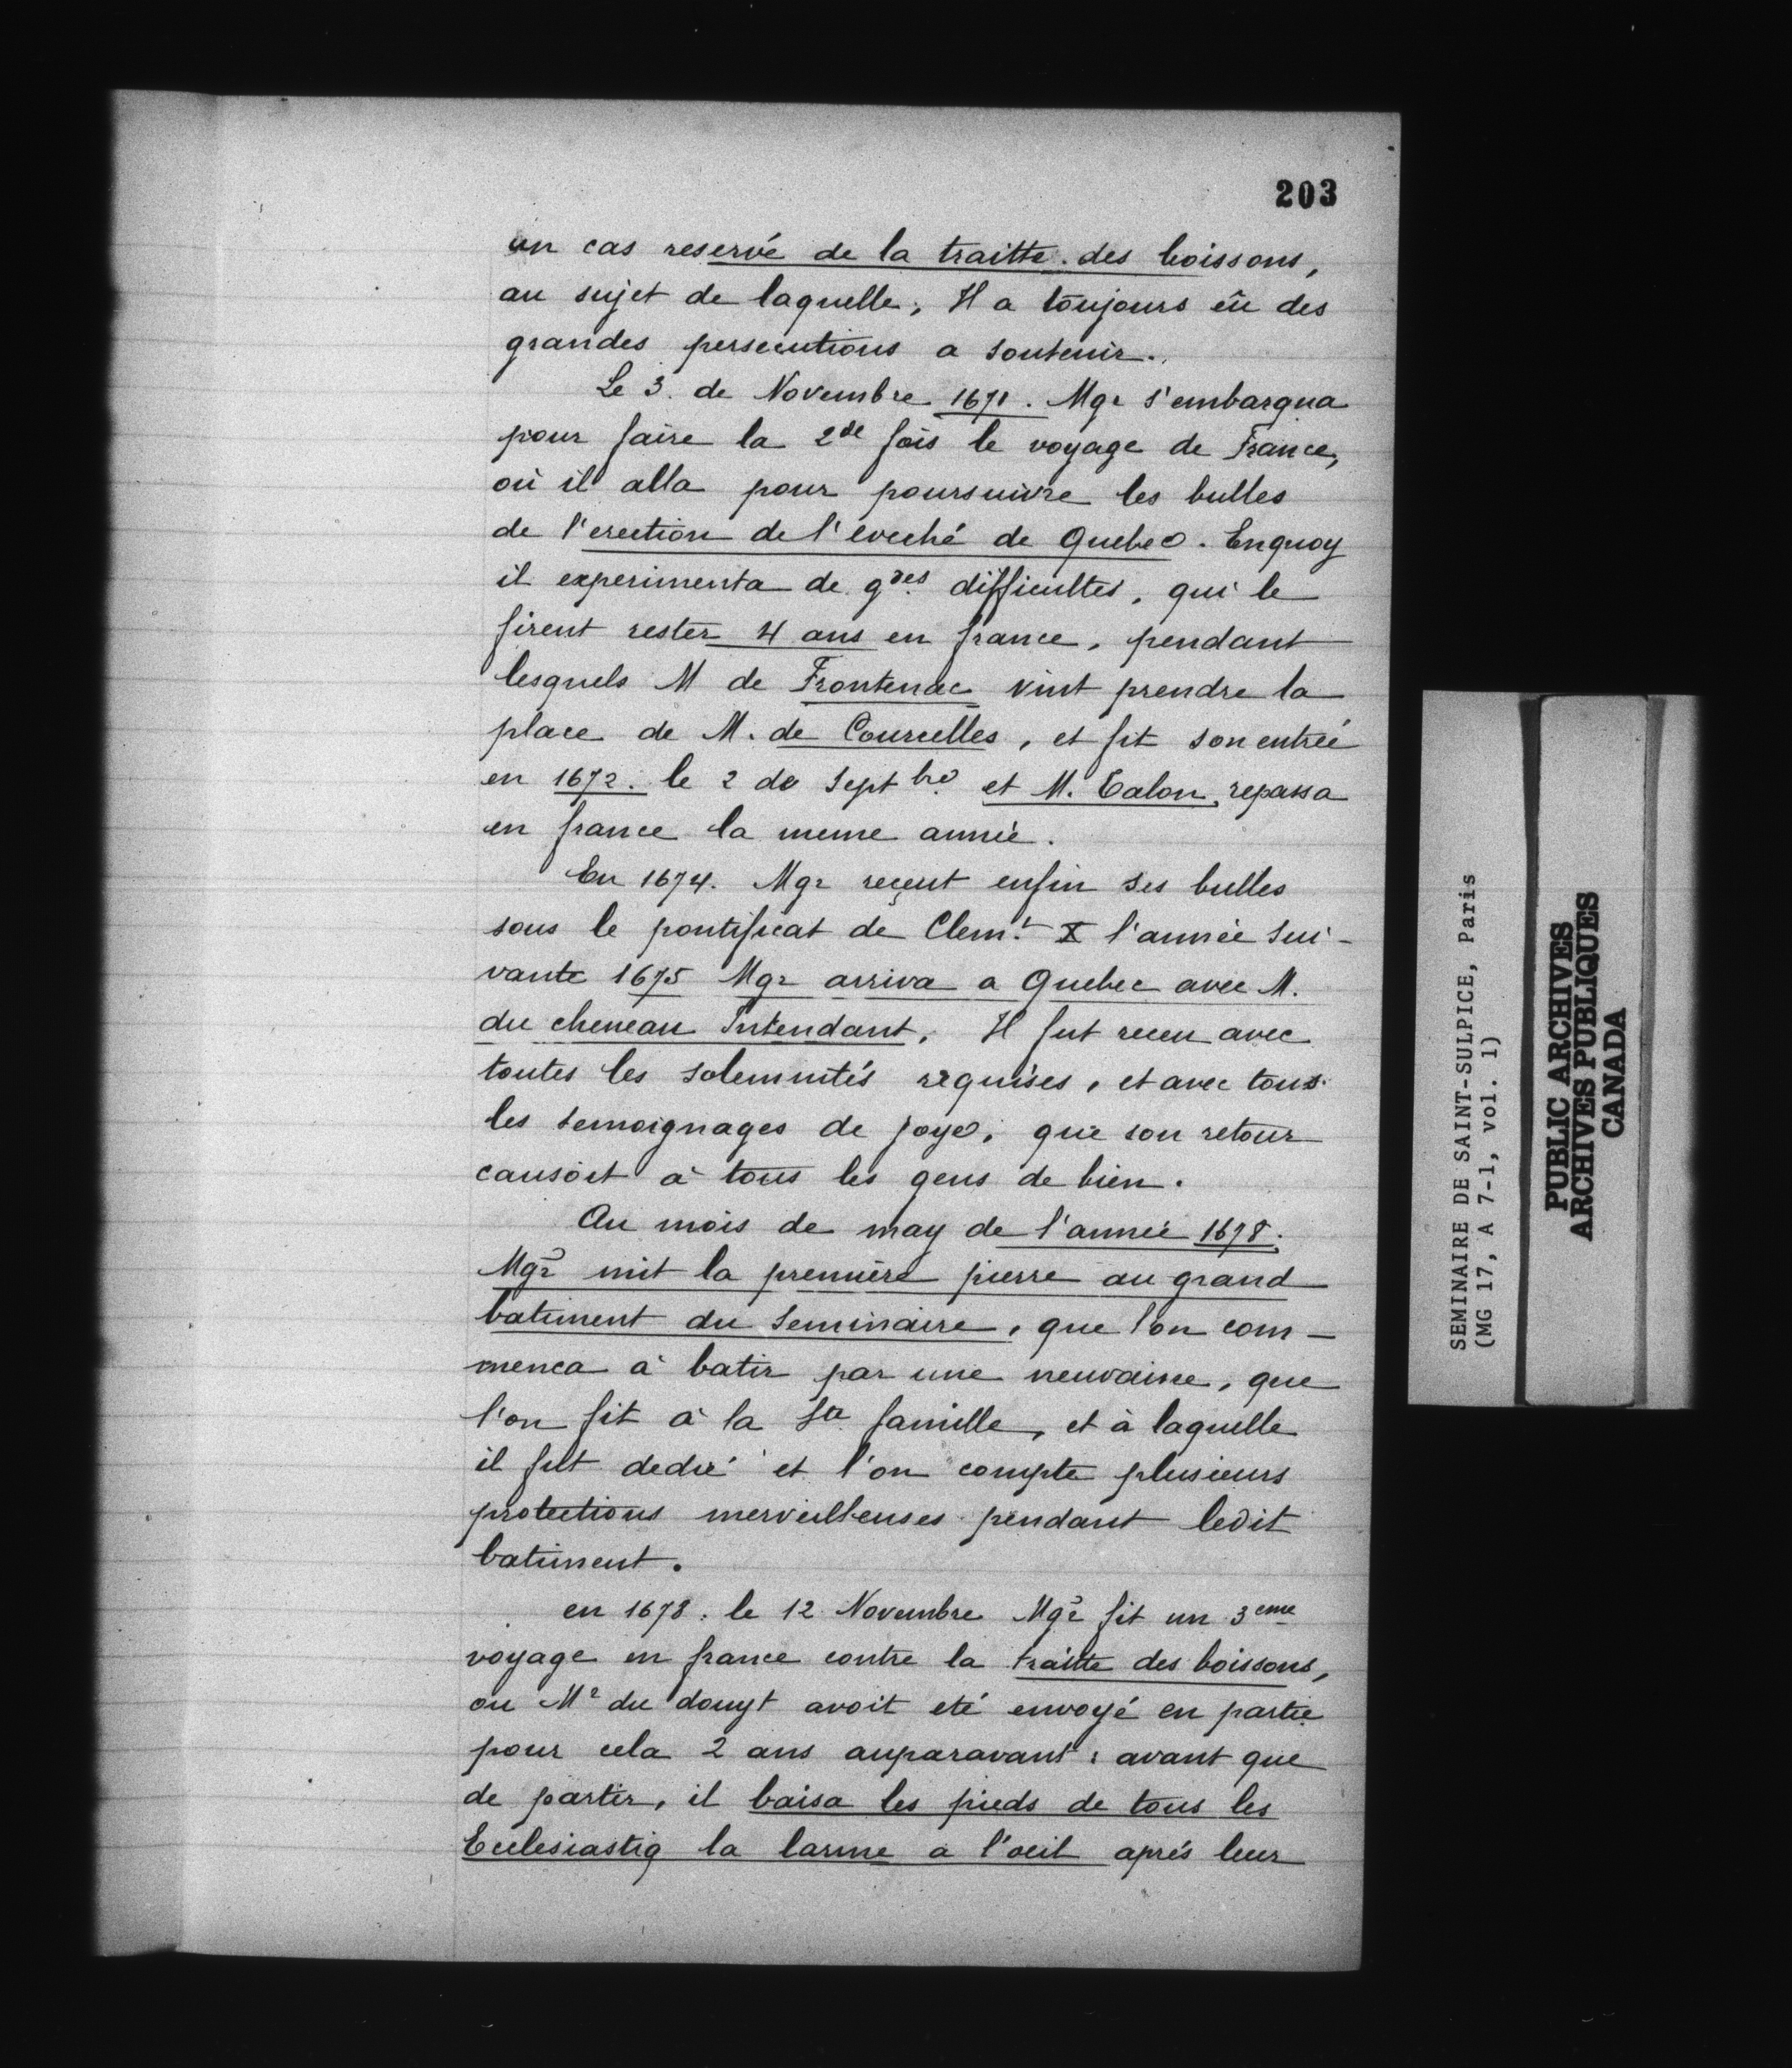 203
un cas reservé de la traitte des boissons,
au sujet de laquelle, Il a toujours eû des
grandes persecutions a soutenir.
Le 3. de Novembre 1671. Mgr s'embarqua
pour faire la 2de fois le voyage de France,
où il alla pour poursuivre les bulles
de l'erection de l'eveché de Quebec. Enquoy
il experimenta de gdes difficultes, qui le
firent rester 4 ans en france, pendant
lesquels M de Frontenac vint prendre la
place de M. de Courcelles, et fit son entrée
en 1672. le 2 de Septbre et M. Talon, repassa
en france la meme année.
En 1674. Mgr reçeut enfin ses bulles
sous le pontificat de Clemt X l'année sui-
vante 1675 Mgr arriva a Quebec avec M.
du cheneau Intendant. Il fut receu avec
toutes les solemnités requises, et avec tous
les temoignages de joye, que son retour
causoit à tous les gens de bien.
Au mois de may de l'année 1678.
Mgr mit la première pierre au grand
batiment du Seminaire, que l'on com-
menca à batir par une neuvaine, que
l'on fit à la Ste famille, et à laquelle
il fut dedié et l'on compte plusieurs
protections merveilleuses pendant ledit
batiment.
en 1678. le 12 Novembre Mgr fit un 3eme
voyage en france contre la traitte des boissons,
ou Mr du douyt avoit eté envoyé en partie
pour cela 2 ans auparavant: avant que
de partir, il baisa les pieds de tous les
Ecclesiastiq la larme a l'oeil aprés leur
SEMINAIRE DE SAINT-SULPICE, Paris
(MG 17, A 7-1, vol. 1)
PUBLIC ARCHIVES
ARCHIVES PUBLIQUES
CANADA